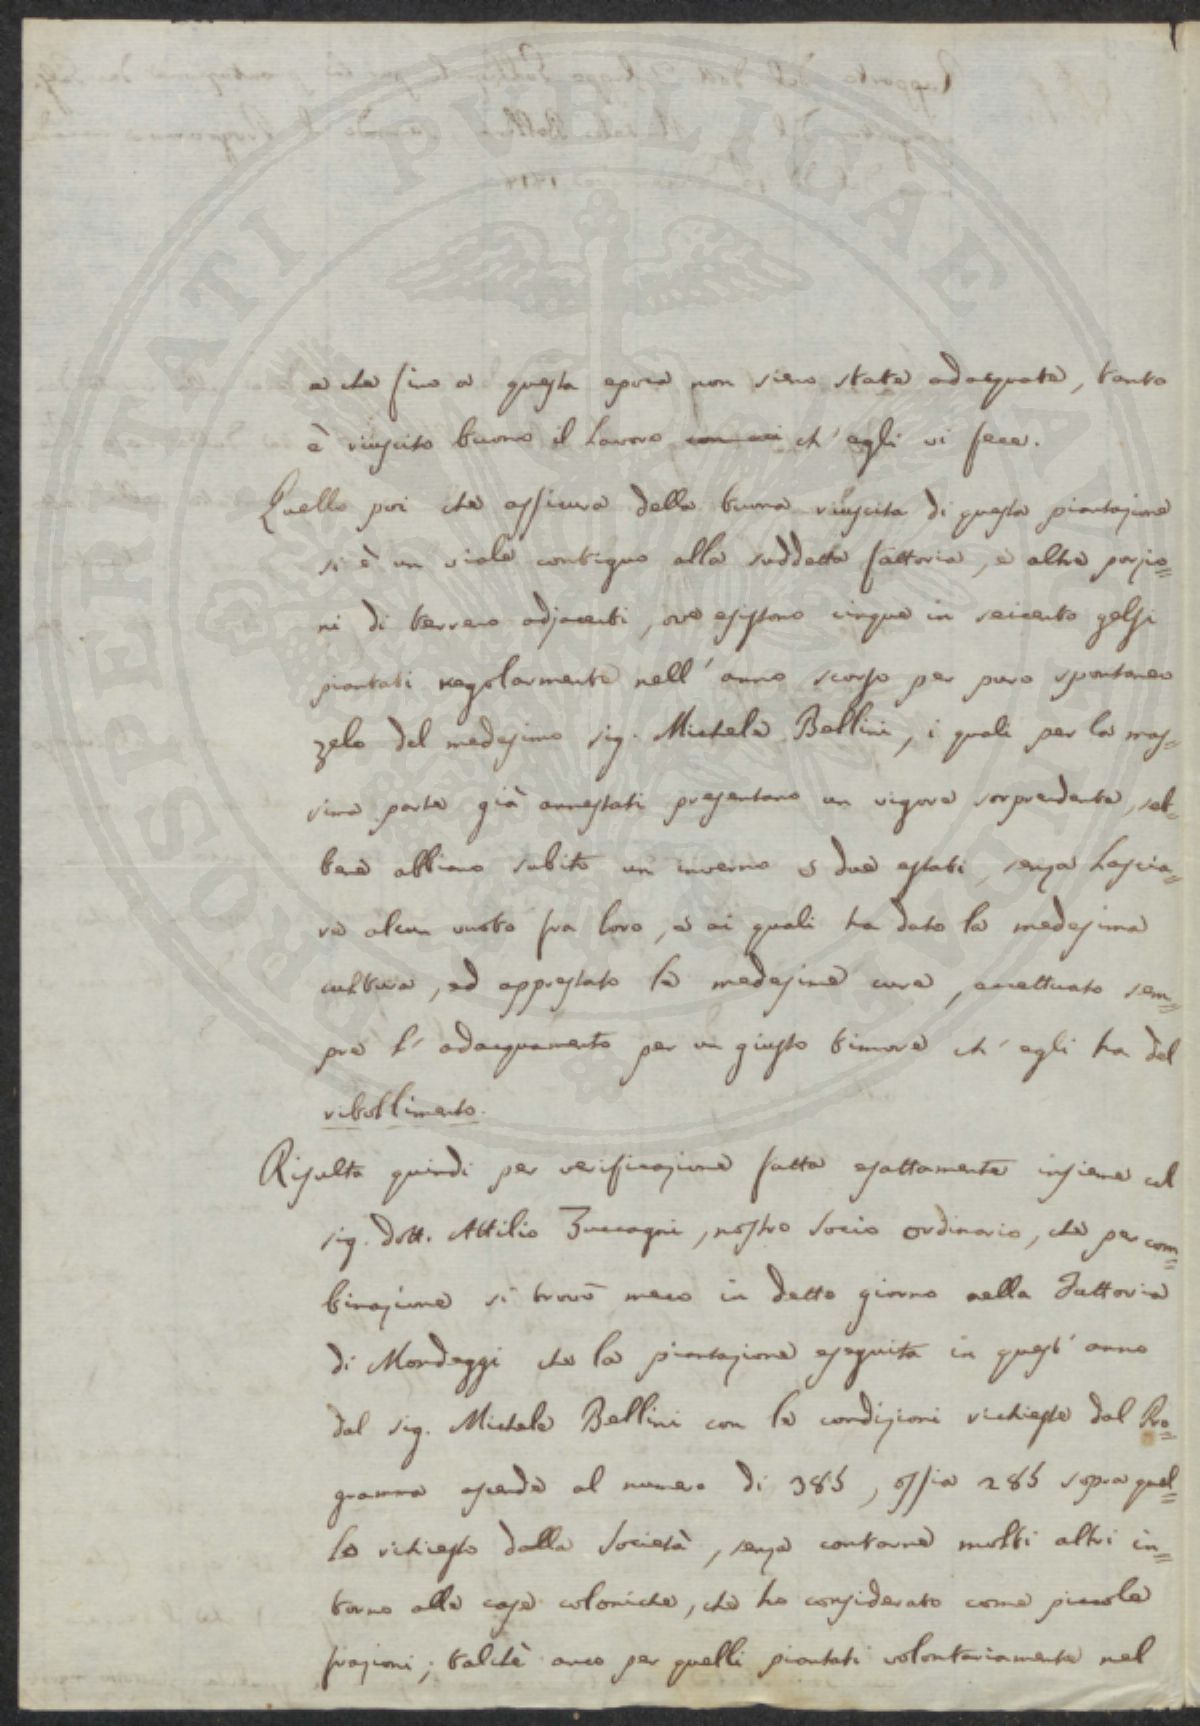 e che fino a questa epoca non sieno state adacquate, tanto
è riuscito buono il lavoro ch'egli vi fece.
Quello poi che assicura della buona riuscita di questa piantazione
si è un viale contiguo alla suddetta fattoria, e altre porzio=
ni di terreno adjacenti, ove esistono cinque in seicento gelsi
piantati regolarmente nell'anno scorso per puro spontaneo
zelo del medesimo sig. Michele Bellini, i quali per la mas=
sima parte già annestati presentano un vigore sorprendente, seb=
bene abbiano subito un inverno e due estati, senza lascia=
re alcun vuoto fra loro, e ai quali ha dato la medesima
cultura, ed apprestato le medesime cure, eccettuato sem=
pre l'adacquamento per un giusto timore ch'egli ha del
ribollimento.
Risulta quindi per verificazione fatta esattamente insieme col
sig. dott. Attilio Zuccagni, nostro socio ordinario, che per com=
binazione si trovò meco in detto giorno nella Fattoria
di Mondeggi che la piantazione eseguita in quest'anno
dal sig. Michele Bellini con le condizioni richieste dal Pro=
gramma ascende al numero di 385, ossia 285 sopra quel=
lo richiesto dalla Società, senza contarne molti altri in=
torno alle case coloniche, che ho considerato come piccole
frazioni; talchè anco per quelli piantati volontariamente nel
PROSPERITATI PUBLICAE AUGENDAE